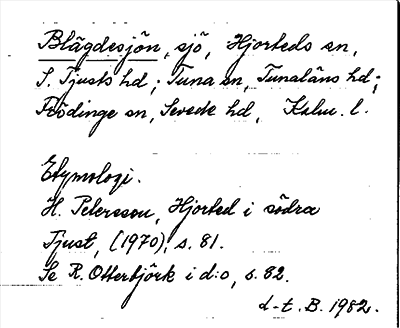 Blägdesjön, sjö, Hjorteds sn,
S. Tjusts hd; Tuna sn, Tunaläns hd;
Frödinge sn, Sevede hd, Kalm. l.
Etymologi.
H. Petersson, Hjorted i södra
Tjust, (1970), s. 81.
Se R. Otterbjörk i d:o, s. 82.
d-t. B. 1982.